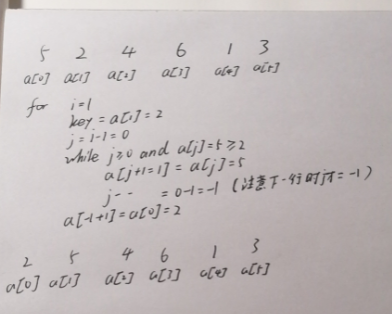 5 2 4 6 1 3
a[0] a[1] a[2] a[3] a[4] a[5]
for i=1
key=a[1]=2
j=i-1=0
while j≥0 and a[j]=5≥2
a[j+1=1]=a[j]=5
j-- =0-1=-1 (注意下一行时j才=-1)
a[-1+1]=a[0]=2
2 5 4 6 1 3
a[0] a[1] a[2] a[3] a[4] a[5]